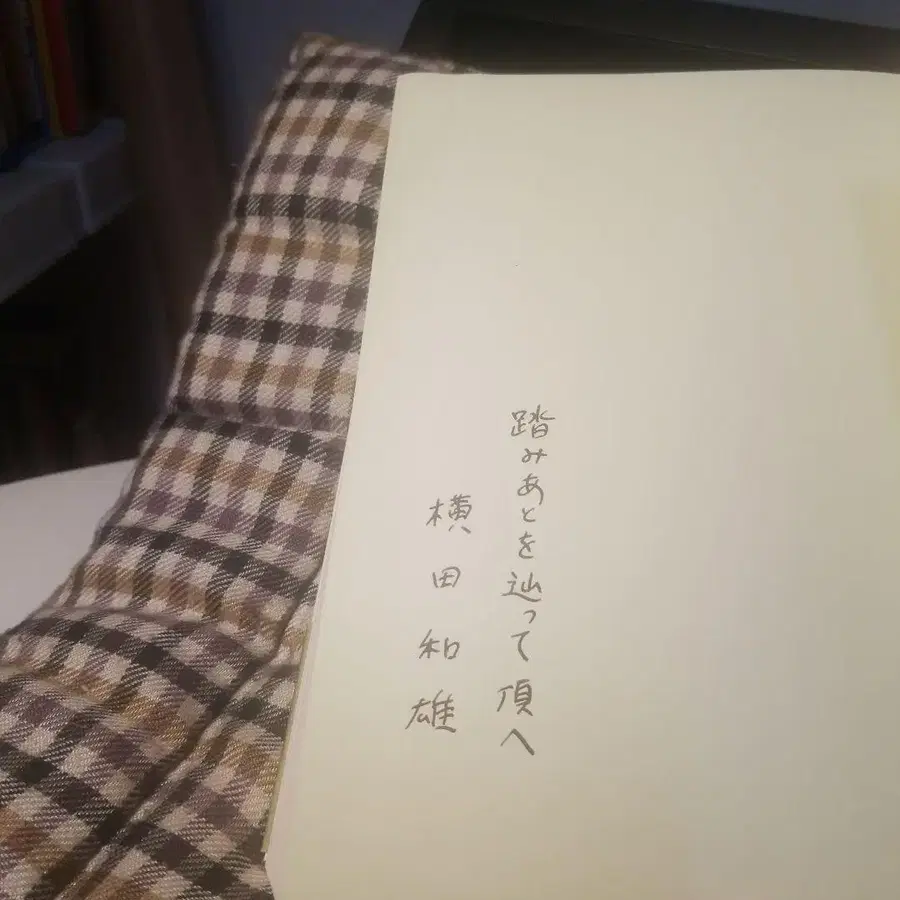 踏みあとを辿って頂へ
横田和雄